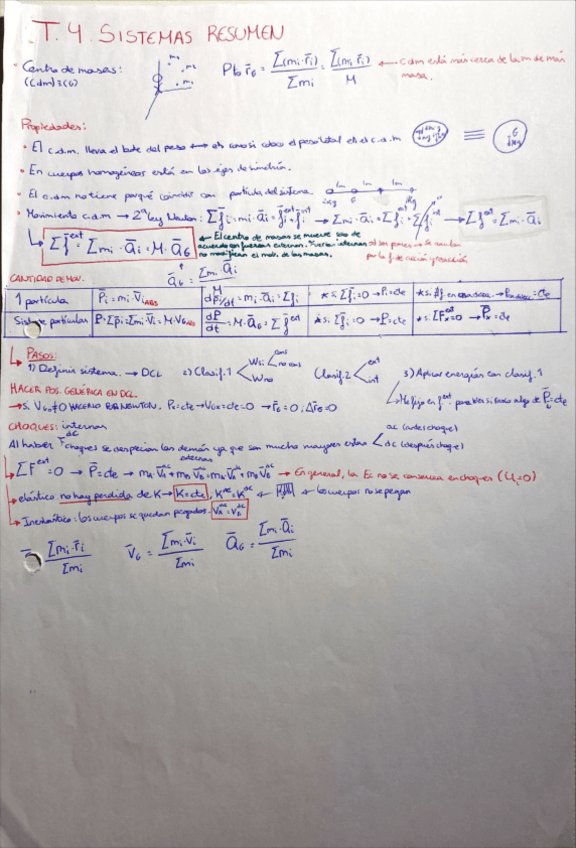 T. 4. SISTEMAS RESUMEN
Centro de masas: (Cdm)≡(G)
m₁ m₂ m₃
r̄_G = Σ(mᵢ·r̄ᵢ)/Σmᵢ = Σ(mᵢ·r̄ᵢ)/M ← Cdm está más cerca de la m de más masa.
Propiedades:
• El c.d.m. lleva el bote del peso ↔ es como si coloco el peso total en el c.d.m
• En cuerpos homogéneos está en los ejes de simetría.
• El c.d.m no tiene porqué coincidir con partícula del sistema.
• Movimiento c.d.m → 2ª ley Newton: Σf̄ᵢ = mᵢ·āᵢ = f̄ᵢᵉˣᵗ + f̄ᵢⁱⁿᵗ → Σmᵢ·āᵢ = Σf̄ᵢᵉˣᵗ + Σf̄ᵢⁱⁿᵗ → Σf̄ᵉˣᵗ = Σmᵢ·āᵢ
Σf̄ᵉˣᵗ = Σmᵢ·āᵢ = M·ā_G
← El centro de masas se mueve solo de acuerdo con fuerzas externas. Fuerzas internas no modifican el mov. de las masas.
ā_G = Σmᵢ·āᵢ/M
CANTIDAD DE MOV.
1 partícula | P̄ᵢ = mᵢ·v̄ᵢ ABS | dP̄ᵢ/dt = mᵢ·āᵢ = Σf̄ᵢ | * si Σf̄ᵢ=0 → P̄ᵢ=cte
Sistema partículas | P̄=Σp̄ᵢ=Σmᵢ·v̄ᵢ=M·v_G ABS | dP̄/dt = M·ā_G = Σf̄ᵉˣᵗ | * si Σf̄ᵢ=0 → P̄=cte | * si ΣFₓᵉˣᵗ=0 → P̄ₓ=cte
PASOS:
1) Definir sistema. → DCL 2) Clasif. 1 < W sí < cons / no cons / W no Clasif. 2 < ext / int 3) Aplicar energías con clasif. 1
HACER POS. GENÉRICA EN DCL.
→ Si V_G₀≠0 HACERLO POR NEWTON. Pₓ=cte → V_Gx=cte=0 → r̄_G=0; Δr̄_G=0
CHOQUES: internas
Al haber F choques se desprecian las demás externas ya que son mucho mayores estas < ac (antes choque) / dc (después choque)
ΣFᵉˣᵗ=0 → P̄=cte → m_A v̄_Aᵃᶜ + m_B v̄_Bᵃᶜ = m_A v̄_Aᵈᶜ + m_B v̄_Bᵈᶜ → En general, la Ec no se conserva en choques
elástico no hay perdida de K → K=cte, Kᵃᶜ=Kᵈᶜ ← los cuerpos no se pegan
Inelástico: los cuerpos se quedan pegados. v̄_Aᵈᶜ=v̄_Bᵈᶜ
Σmᵢ·r̄ᵢ/Σmᵢ v̄_G = Σmᵢ·v̄ᵢ/Σmᵢ ā_G = Σmᵢ·āᵢ/Σmᵢ